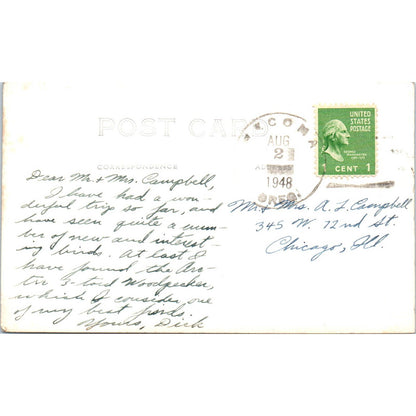 POST CARD
CORRESPONDENCE
Dear Mr. & Mrs. Campbell,
I have had a won-
derful trip so far, and
have seen quite a num-
ber of new and interest-
ing birds. At last I
have found the Arc-
tic 3-toed Woodpecker,
which I consider one
of my best finds.
Yours, Dick
AUG
2
1948
OREG.
UNITED
STATES
POSTAGE
GEORGE
WASHINGTON
CENT 1
Mr & Mrs. A. L. Campbell
345 W. 72nd St.
Chicago, Ill.